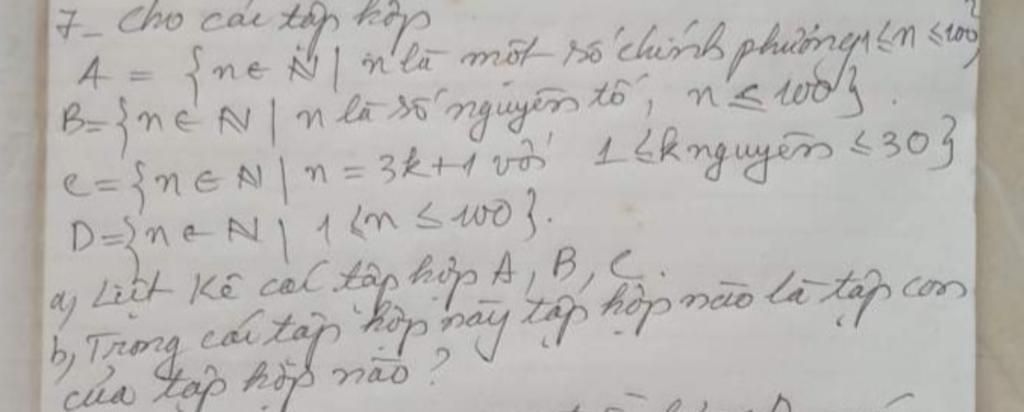 7- Cho các tập hợp
A = {n ∈ N | n là một số chính phương 1 ≤ n ≤ 100}
B = {n ∈ N | n là số nguyên tố, n ≤ 100}.
C = {n ∈ N | n = 3k+1 với 1 ≤ k nguyên ≤ 30}
D = {n ∈ N | 1 < n ≤ 100}.
a, Liệt kê các tập hợp A, B, C.
b, Trong các tập hợp này tập hợp nào là tập con
của tập hợp nào?